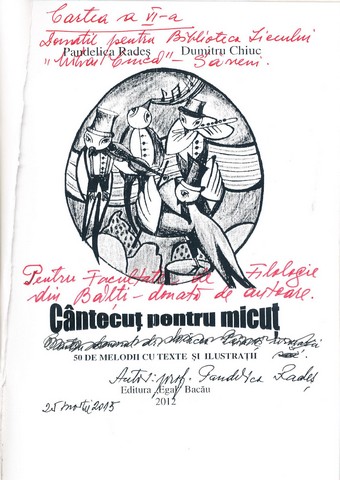 Cartea a VI-a
Donată pentru Biblioteca Liceului
Pandelica Radeș Dumitru Chiuc
"Mihai Ciucă" - Săveni.
Pentru Facultatea de Filologie
din Bălti - donată de autoare.
Cântecuț pentru micuț
50 DE MELODII CU TEXTE ȘI ILUSTRAȚII
Autor: prof. Pandelica Radeș
Editura Egal Bacău
25 martie 2015
2012